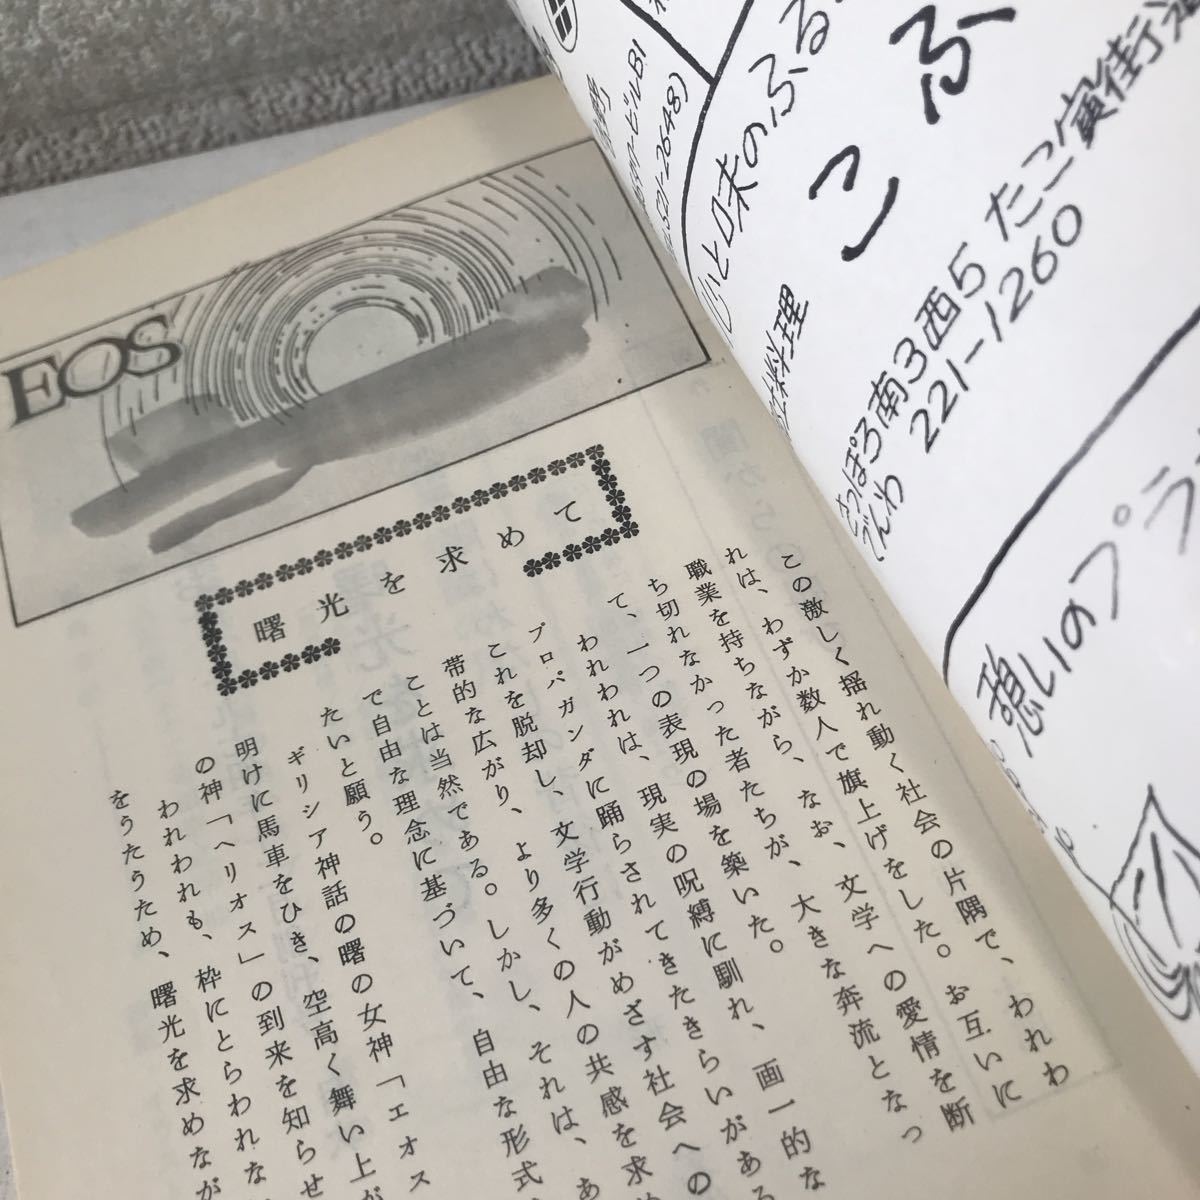 EOS
曙光を求めて
この激しく揺れ動く社会の片隅で、われわ
れは、わずか数人で旗上げをした。お互いに
職業を持ちながら、なお、文学への愛情を断
ち切れなかった者たちが、大きな奔流となっ
て、一つの表現の場を築いた。
われわれは、現実の呪縛に馴れ、画一的な
プロパガンダに踊らされてきたきらいがある
これを脱却し、文学行動がめざす社会への
帯的な広がり、より多くの人の共感を求
ことは当然である。しかし、それは、あ
で自由な理念に基づいて、自由な形式
たいと願う。
ギリシア神話の曙の女神「エオス
明けに馬車をひき、空高く舞い上が
の神「ヘリオス」の到来を知らせ
われわれも、枠にとらわれな
をうたうため、曙光を求めなが
ビルB1
521-2648)
心と味のふる
こふ
料理
さっぽろ南3西5 たこ寅街
でんわ 221-1260
憩いのプラ